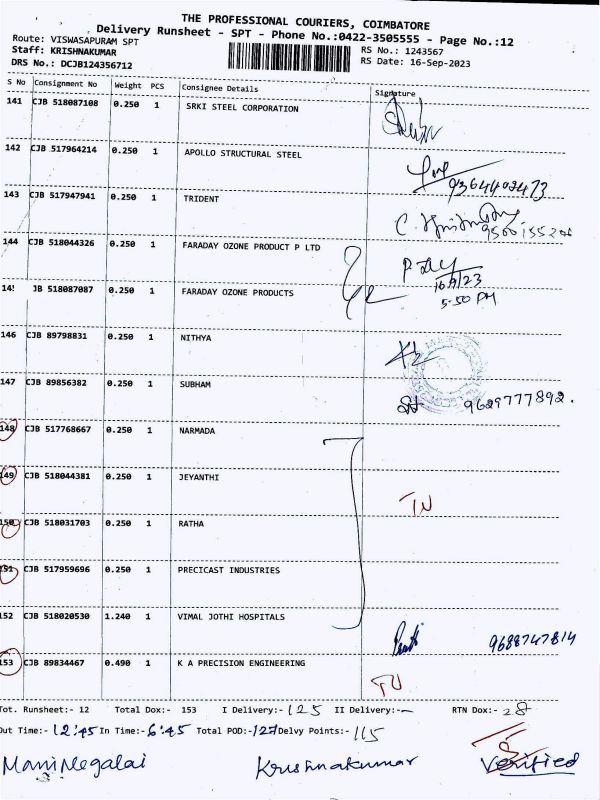 THE PROFESSIONAL COURIERS, COIMBATORE
Delivery Runsheet - SPT - Phone No.:0422-3505555 - Page No.:12
Route: VISWASAPURAM SPT
RS No.: 1243567
Staff: KRISHNAKUMAR
RS Date: 16-Sep-2023
DRS No.: DCJB124356712
S No Consignment No Weight PCS Consignee Details Signature
141 CJB 518087108 0.250 1 SRKI STEEL CORPORATION
142 CJB 517964214 0.250 1 APOLLO STRUCTURAL STEEL
9364402473
143 CJB 517947941 0.250 1 TRIDENT
144 CJB 518044326 0.250 1 FARADAY OZONE PRODUCT P LTD
16/9/23
14 JB 518087087 0.250 1 FARADAY OZONE PRODUCTS
5.50 PM
146 CJB 89798831 0.250 1 NITHYA
147 CJB 89856382 0.250 1 SUBHAM
9629777892.
148 CJB 517768667 0.250 1 NARMADA
149 CJB 518044381 0.250 1 JEYANTHI
TN
150 CJB 518031703 0.250 1 RATHA
151 CJB 517959696 0.250 1 PRECICAST INDUSTRIES
152 CJB 518020530 1.240 1 VIMAL JOTHI HOSPITALS
9688747814
153 CJB 89834467 0.490 1 K A PRECISION ENGINEERING
Tot. Runsheet:- 12 Total Dox:- 153 I Delivery:- 125 II Delivery:- — RTN Dox:- 28
Out Time:- 12:45 In Time:- 6:45 Total POD:- 127 Delvy Points:- 115
ManiMegalai Krishnakumar Verified